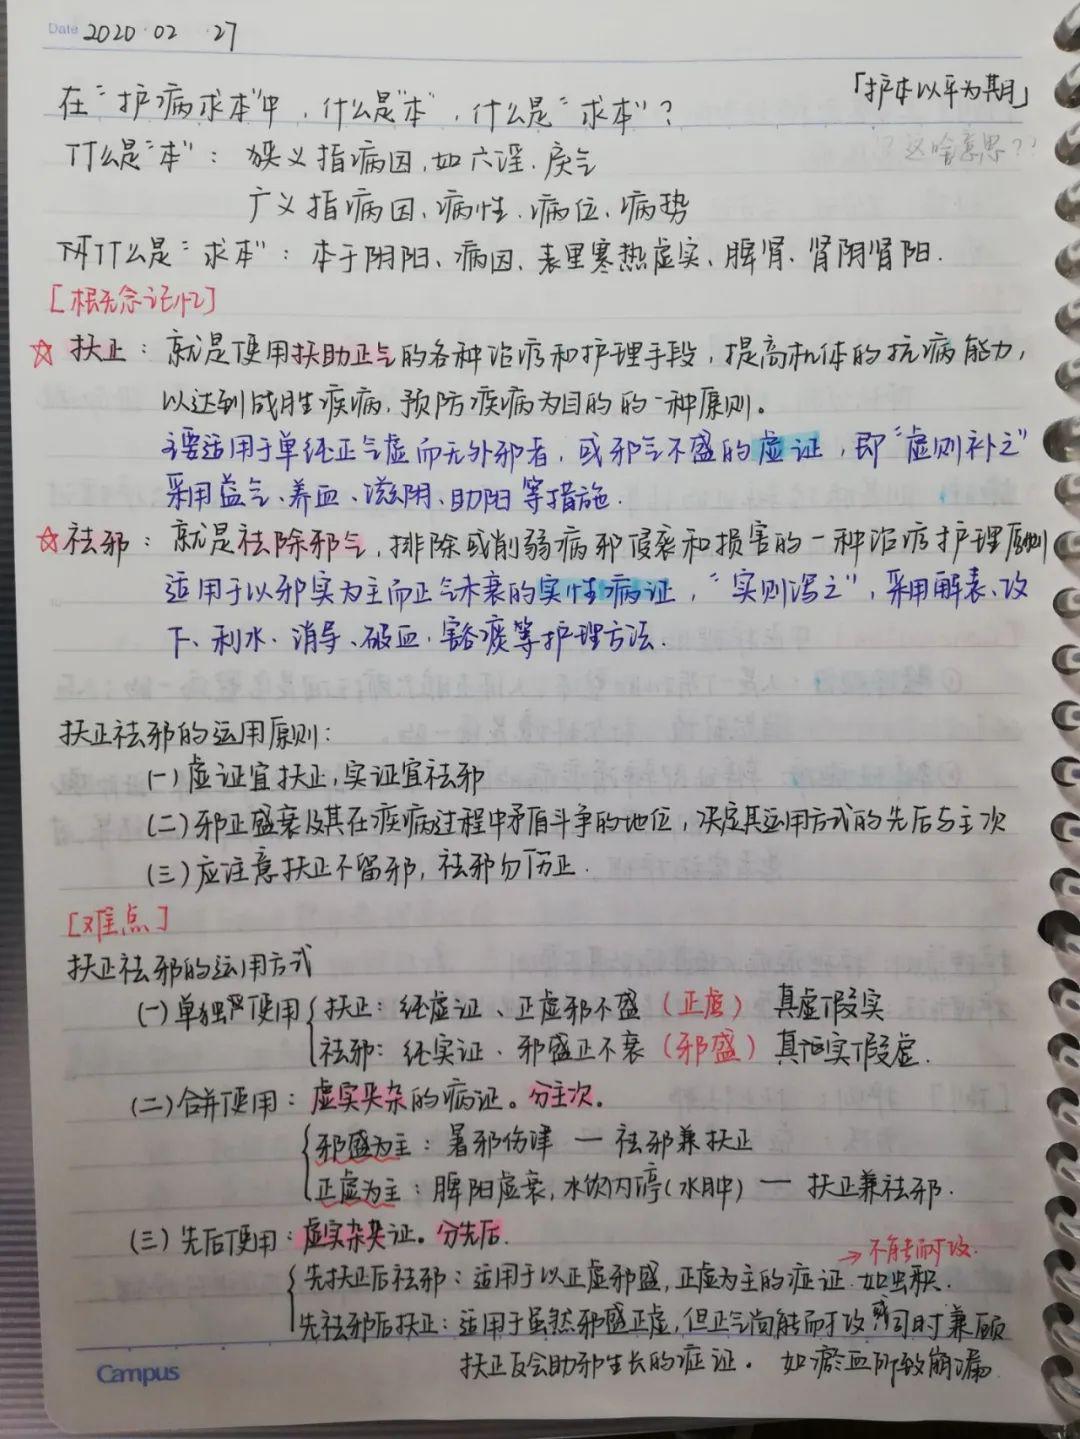 Date 2020.02.27
「护本以平为期」
在“护病求本”中，什么是“本”，什么是“求本”？
这啥意思??
什么是“本”：狭义指病因，如六淫、戾气
广义指病因、病性、病位、病势
什么是“求本”：本于阴阳、病因、表里寒热虚实、脾肾、肾阴肾阳.
[概念记忆]
☆扶正：就是使用扶助正气的各种治疗和护理手段，提高机体的抗病能力，
以达到战胜疾病，预防疾病为目的的一种原则。
主要适用于单纯正气虚而无外邪者，或邪气不盛的虚证，即“虚则补之”
采用益气、养血、滋阴、助阳等措施.
☆祛邪：就是祛除邪气，排除或削弱病邪侵袭和损害的一种治疗护理原则
适用于以邪实为主而正气未衰的实性病证，“实则泻之”，采用解表、攻
下、利水、消导、破血、豁痰等护理方法.
扶正祛邪的运用原则：
(一)虚证宜扶正，实证宜祛邪
(二)邪正盛衰及其在疾病过程中矛盾斗争的地位，决定其运用方式的先后与主次
(三)应注意扶正不留邪，祛邪勿伤正.
[难点]
扶正祛邪的运用方式
(一)单独使用{扶正：纯虚证、正虚邪不盛（正虚）真虚假实
祛邪：纯实证、邪盛正不衰（邪盛）真实假虚.
(二)合并使用：虚实夹杂的病证。分主次。
{邪盛为主：暑邪伤津—祛邪兼扶正
正虚为主：脾阳虚衰，水饮内停(水肿)—扶正兼祛邪.
(三)先后使用：虚实杂夹证。分先后.
→不能耐攻.
{先扶正后祛邪：适用于以正虚邪盛，正虚为主的症证.如虫积.
先祛邪后扶正：适用于虽然邪盛正虚，但正气尚能耐攻或同时兼顾
扶正反会助邪生长的症证。如瘀血所致崩漏.
Campus